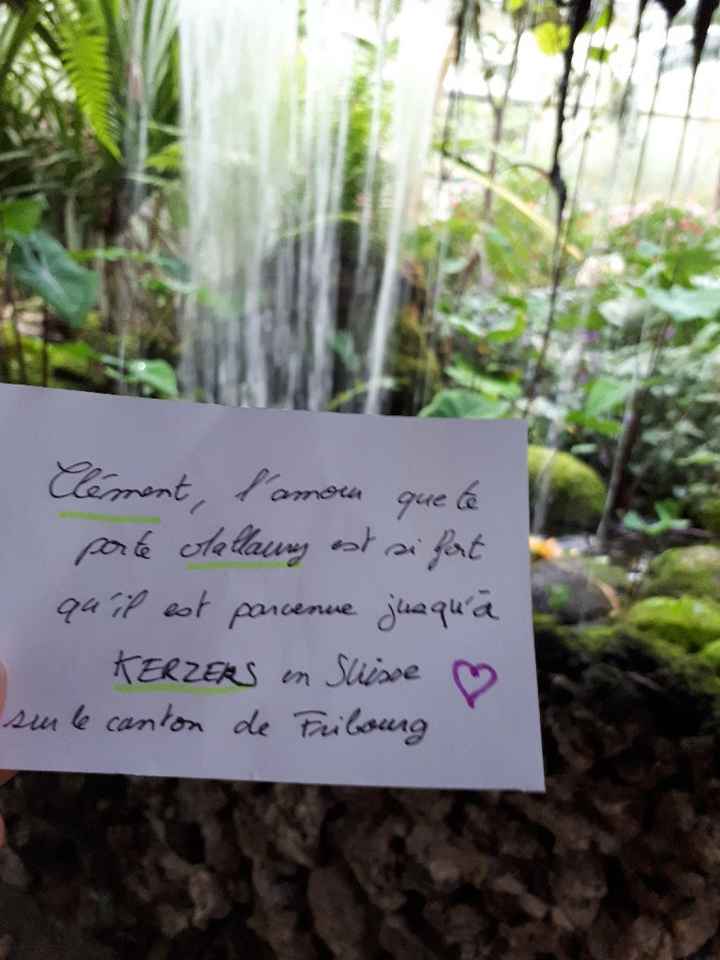 Clément, l'amour que te
porte est si fort
qu'il est parvenue jusqu'à
KERZERS en Suisse
sur le canton de Fribourg